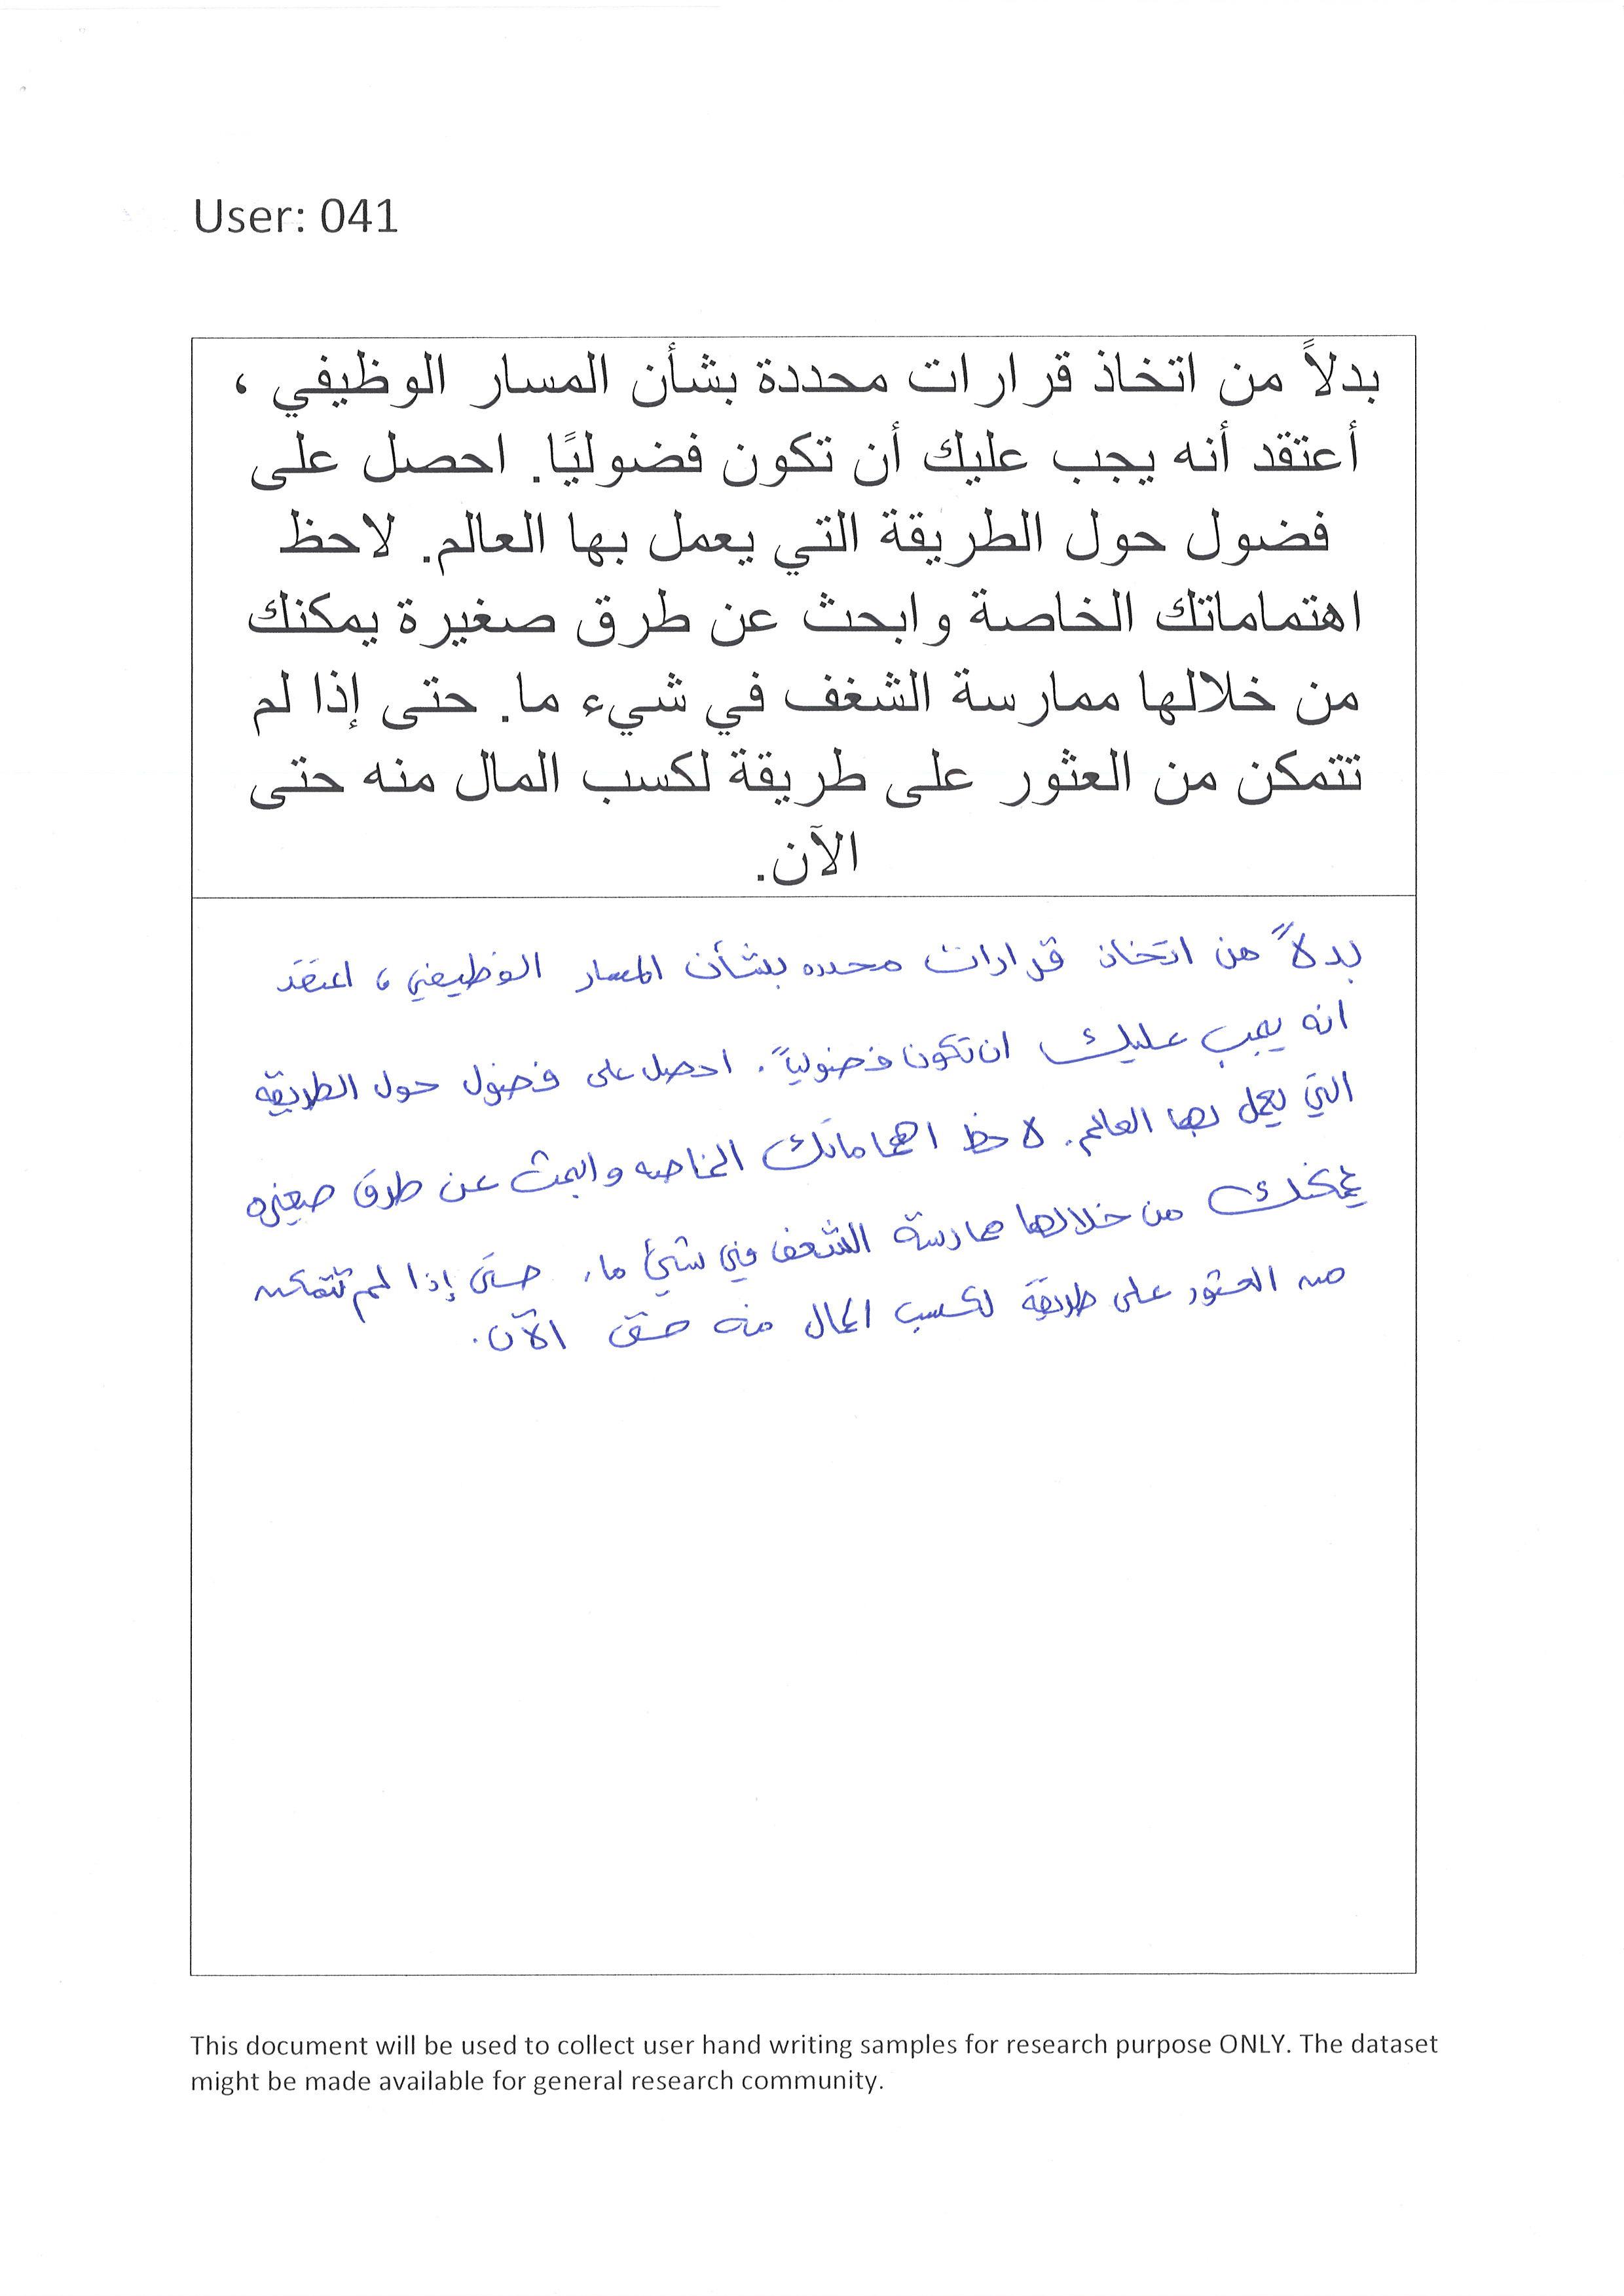 User: 041
بدلاً من اتخاذ قرارات محددة بشأن المسار الوظيفي ،
أعتقد أنه يجب عليك أن تكون فضوليًا. احصل على
فضول حول الطريقة التي يعمل بها العالم. لاحظ
اهتماماتك الخاصة وابحث عن طرق صغيرة يمكنك
من خلالها ممارسة الشغف في شيء ما. حتى إذا لم
تتمكن من العثور على طريقة لكسب المال منه حتى
الآن.
بدلاً من اتخاذ قرارات محدده بشأن المسار الوظيفي ، اعتقد
انه يجب عليك ان تكون فضولياً. احصل على فضول حول الطريقه
التي يعمل بها العالم. لاحظ اهتماماتك الخاصه وابحث عن طرق صغيره
يمكنك من خلالها ممارسة الشغف في شيئ ما. حتى إذا لم تتمكن
من العثور على طريقة لكسب المال منه حتى الآن.
This document will be used to collect user hand writing samples for research purpose ONLY. The dataset
might be made available for general research community.